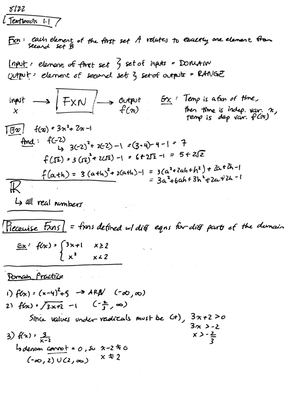 8/22
Textbook 1.1
Fxn: each element of the first set A relates to exactly one element from
second set B
Input: element of first set } set of inputs = DOMAIN
Output: element of second set } set of outputs = RANGE
input x → FXN → output f(x)
Ex: Temp is a fxn of time,
then time is indep. var. x,
temp is dep var. f(x)
Ex f(x) = 3x² + 2x - 1
find: f(-2)
↳ 3(-2)² + 2(-2) - 1 = (3·4) - 4 - 1 = 7
f(√2) = 3(√2)² + 2(√2) - 1 = 6 + 2√2 - 1 = 5 + 2√2
f(a+h) = 3(a+h)² + 2(a+h) - 1 = 3(a² + 2ah + h²) + 2a + 2h - 1
= 3a² + 6ah + 3h² + 2a + 2h - 1
ℝ
↳ all real numbers
Piecewise Fxns = fxns defined w/ diff eqns for diff parts of the domain
Ex: f(x) = { 3x+1 x ≥ 2
x² x < 2
Domain Practice
1) f(x) = (x-4)² + 5 → ARN (-∞, ∞)
2) f(x) = √3x+2 - 1 (-2/3, ∞)
Since values under radicals must be (+), 3x+2 > 0
3x > -2
x > -2/3
3) f(x) = 3/x-2
↳ denom cannot = 0, so x-2 ≠ 0
(-∞, 2) ∪ (2, ∞) x ≠ 2